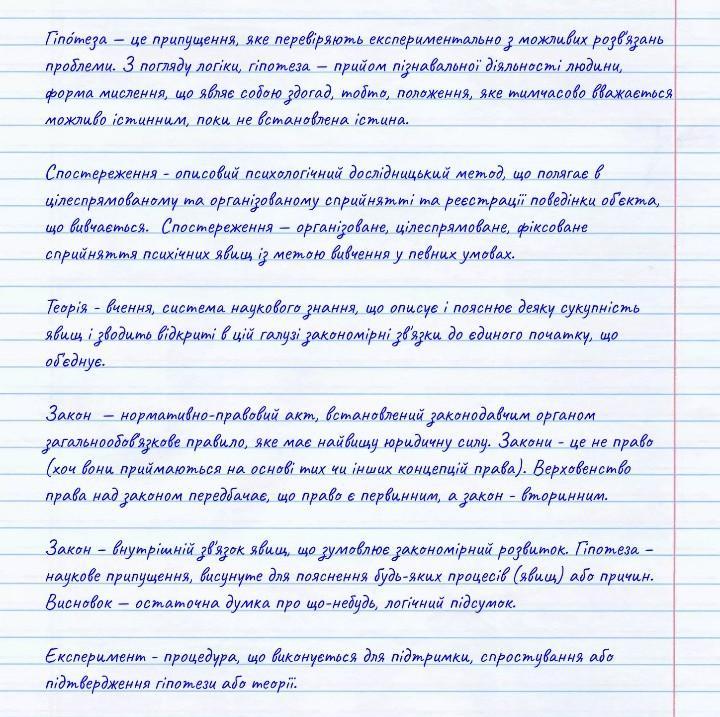 Гіпо́теза — це припущення, яке перевіряють експериментально з можливих розв'язань
проблеми. З погляду логіки, гіпотеза — прийом пізнавальної діяльності людини,
форма мислення, що являє собою здогад, тобто, положення, яке тимчасово вважається
можливо істинним, поки не встановлена істина.
Спостереження - описовий психологічний дослідницький метод, що полягає в
цілеспрямованому та організованому сприйнятті та реєстрації поведінки об'єкта,
що вивчається. Спостереження — організоване, цілеспрямоване, фіксоване
сприйняття психічних явищ із метою вивчення у певних умовах.
Теорія - вчення, система наукового знання, що описує і пояснює деяку сукупність
явищ і зводить відкриті в цій галузі закономірні зв'язки до єдиного початку, що
об'єднує.
Закон — нормативно-правовий акт, встановлений законодавчим органом
загальнообов'язкове правило, яке має найвищу юридичну силу. Закони - це не право
(хоч вони приймаються на основі тих чи інших концепцій права). Верховенство
права над законом передбачає, що право є первинним, а закон - вторинним.
Закон – внутрішній зв'язок явищ, що зумовлює закономірний розвиток. Гіпотеза –
наукове припущення, висунуте для пояснення будь-яких процесів (явищ) або причин.
Висновок — остаточна думка про що-небудь, логічний підсумок.
Експеримент - процедура, що виконується для підтримки, спростування або
підтвердження гіпотези або теорії.